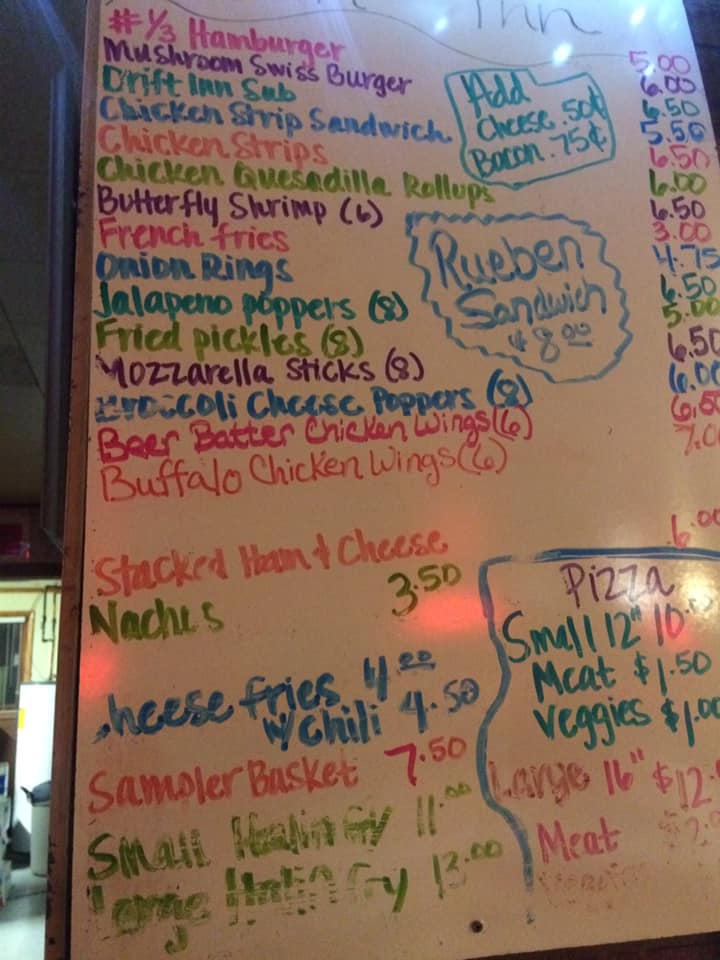 Inn
# 1/3 Hamburger 5.00
Mushroom Swiss Burger 6.00
Drift Inn Sub 6.50
Chicken Strip Sandwich 5.50
Chicken Strips 6.50
Chicken Quesadilla Rollups 6.00
Butterfly Shrimp (6) 6.50
French fries 3.00
Onion Rings 4.75
Jalapeno poppers (8) 6.50
Fried pickles (8) 5.00
Mozzarella sticks (8) 6.50
Broccoli Cheese Poppers (8) 6.00
Beer Batter Chicken Wings (6) 6.50
Buffalo Chicken Wings (6) 7.0
Add
Cheese .50¢
Bacon .75¢
Rueben
Sandwich
$8.00
Stacked Ham & Cheese 6.00
Nachos 3.50
Cheese fries 4.00
w/ Chili 4.50
Sampler Basket 7.50
Small 11.00
Large 13.00
Pizza
Small 12" 10.00
Meat $1.50
Veggies $1.00
Large 16" $12.
Meat